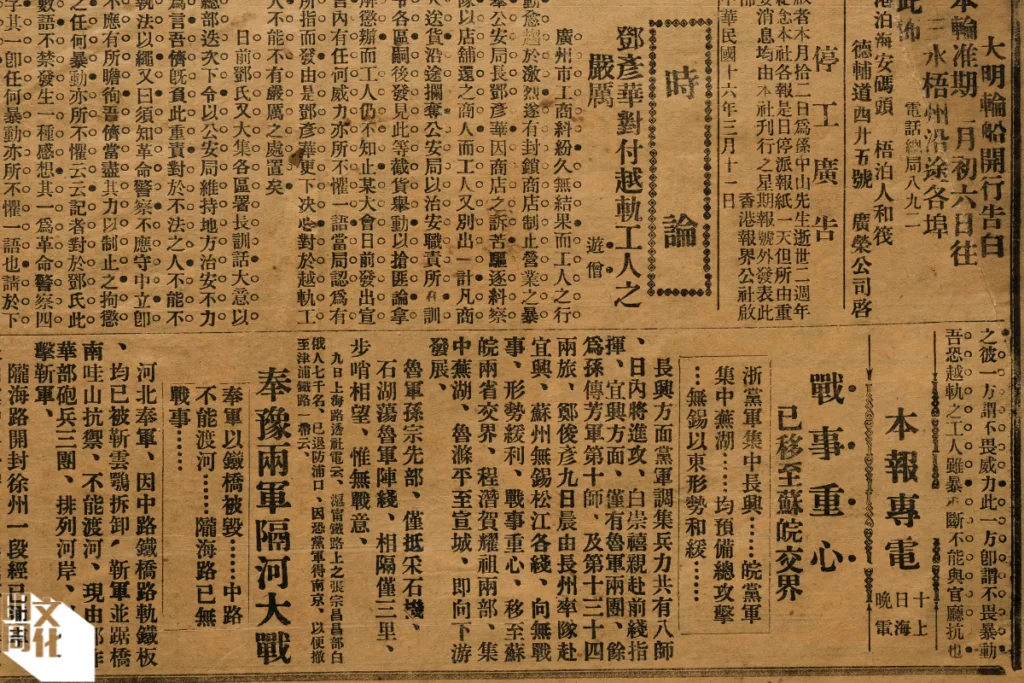 大明輪船開行告白
本輪准期二月初六日往
三水梧州沿途各埠
此佈
電話總局八九二
港泊海安碼頭 梧泊人和筏
德輔道西廿五號 廣榮公司啓
停工廣告
敬者本月拾二日為孫中山先生逝世二週年
紀念本社各報是日停派報紙一天但所由重
要消息均由本社刊行之星期報號外發表此
佈
香港報界公社啟
中華民國十六年三月十一日
時論
鄧彥華對付越軌工人之
嚴厲
遊僧
廣州市工商糾紛久無結果而工人之行
動愈越於激烈遂有封鎖商店制止營業之暴
舉公安局長鄧彥華因商店之訴苦驅逐糾察
隊以店舖還之商人而工人又別出一計凡商
人送貨沿途攔奪公安局以治安職責所在訓
令各區嗣後發見此等截貨舉動以搶匪論拿
解懲辦而工人仍不知止某大會日前發出宣
言內有任何威力亦所不懼一語當局認為有
所指而發由是鄧彥華更下決心對於越軌工
人不能不有嚴厲之處置矣
日前鄧氏又大集各區署長訓話大意以
總部迭次下令以公安局維持地方治安不力
為言吾儕旣負此重責對於不法之人不能不
執法以繩又曰須知革命警察不應守中立卽
不應有所瞻徇吾儕當盡其力以制止之拘懲
之任何暴動亦所不懼云云記者對於鄧氏此
數語不禁發生一種感想其一為革命警察四
字其一卽任何暴動亦所不懼一語也請於下
之彼一方謂不畏威力此一方卽謂不畏暴動
吾恐越軌之工人雖暴斷不能與官廳抗也
本報專電
十上
日海
晚電
戰事重心
已移至蘇皖交界
浙黨軍集中長興……皖黨軍
集中蕪湖……均預備總攻擊
……無錫以東形勢和緩……
長興方面黨軍調集兵力共有八師
、日內將進攻、白崇禧親赴前綫指
揮、宜興方面、僅有魯軍兩團、餘
為孫傳芳軍第十師、及第十三十四
兩旅、鄭俊彥九日晨由長州率隊赴
宜興、蘇州無錫松江各綫、向無戰
事、形勢緩利、戰事重心、移至蘇
皖兩省交界、程潛賀耀祖兩部、集
中蕪湖、魯滌平至宣城、即向下游
發展、
魯軍孫宗先部、僅抵宋石磯、
石湖蕩魯軍陣綫、相隔僅三里、
步哨相望、惟無戰意、
九日上海路透社電云、滬甯鐵路上之張宗昌部白
俄人七千名、已退防浦口、因恐黨軍得南京、以便撤
至津浦鐵路一帶云、
奉豫兩軍隔河大戰
奉軍以鐵橋被毀……中路
不能渡河……隴海路已無
戰事……
河北奉軍、因中路鐵橋路軌鐵板
、均已被靳雲鶚拆卸、靳軍並踞橋
南哇山抗禦、不能渡河、現由
華部砲兵三團、排列河岸、
擊靳軍、
隴海路開封徐州一段經已
明周
文化